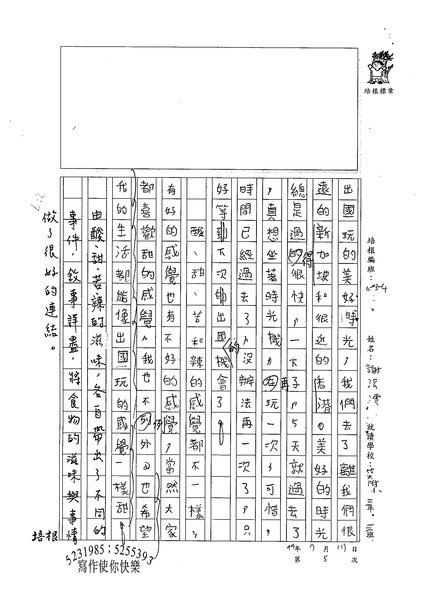 出國玩的美好時光，我們去了離我們很
遠的新加坡和很近的香港，美好的時光
總是過得很快，一下子，5天就過去了
，真想坐著時光機，再玩一次，可惜，
時間已經過去了，沒辦法再一次，只
好等到下次出國的機會了。
酸、甜、苦和辣的感覺都不一樣，
有好的感覺也有不好的感覺，當然大家
都喜歡甜的感覺，我也不例外，也希望
我的生活都能像出國玩的感覺一樣甜。
由酸、甜、苦辣的滋味，各自帶出了不同的
事件，敘事詳盡，將食物的滋味與事情
做了很好的連結。
培根
培根標章
培根編班：
姓名：謝
就讀學校：
年
班
年 7 月 日
第 5 次
5231985；5255393
寫作使你快樂